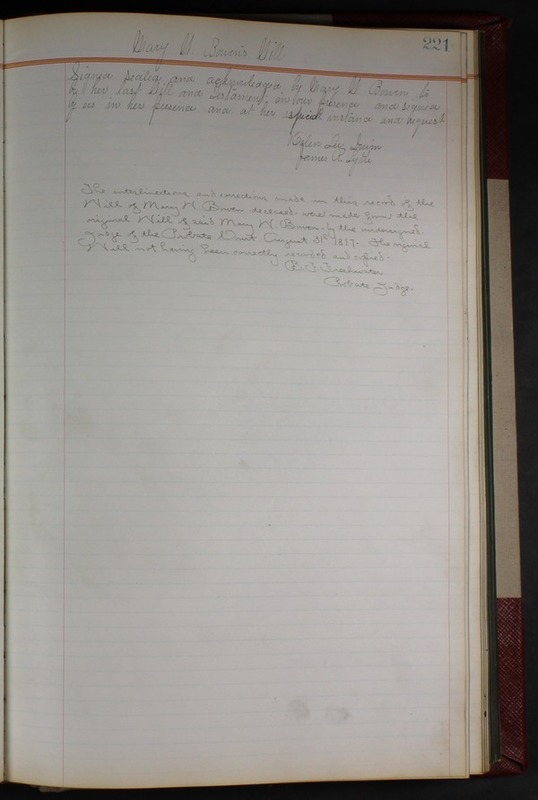 Mary W. Bowen's Will
221
Signed sealed and acknowledged by Mary W Bowen to
be her last Will and Testament, in our presence and signed
by us in her presence and at her special instance and request
James A. Lytle
The interlineations and corrections made in this record of the
Will of Mary W. Bowen deceased were made from the
original Will of said Mary W. Bowen by the undersigned
Judge of the Probate Court August 31st The original
Will not having been correctly recorded and copied.
Probate Judge.